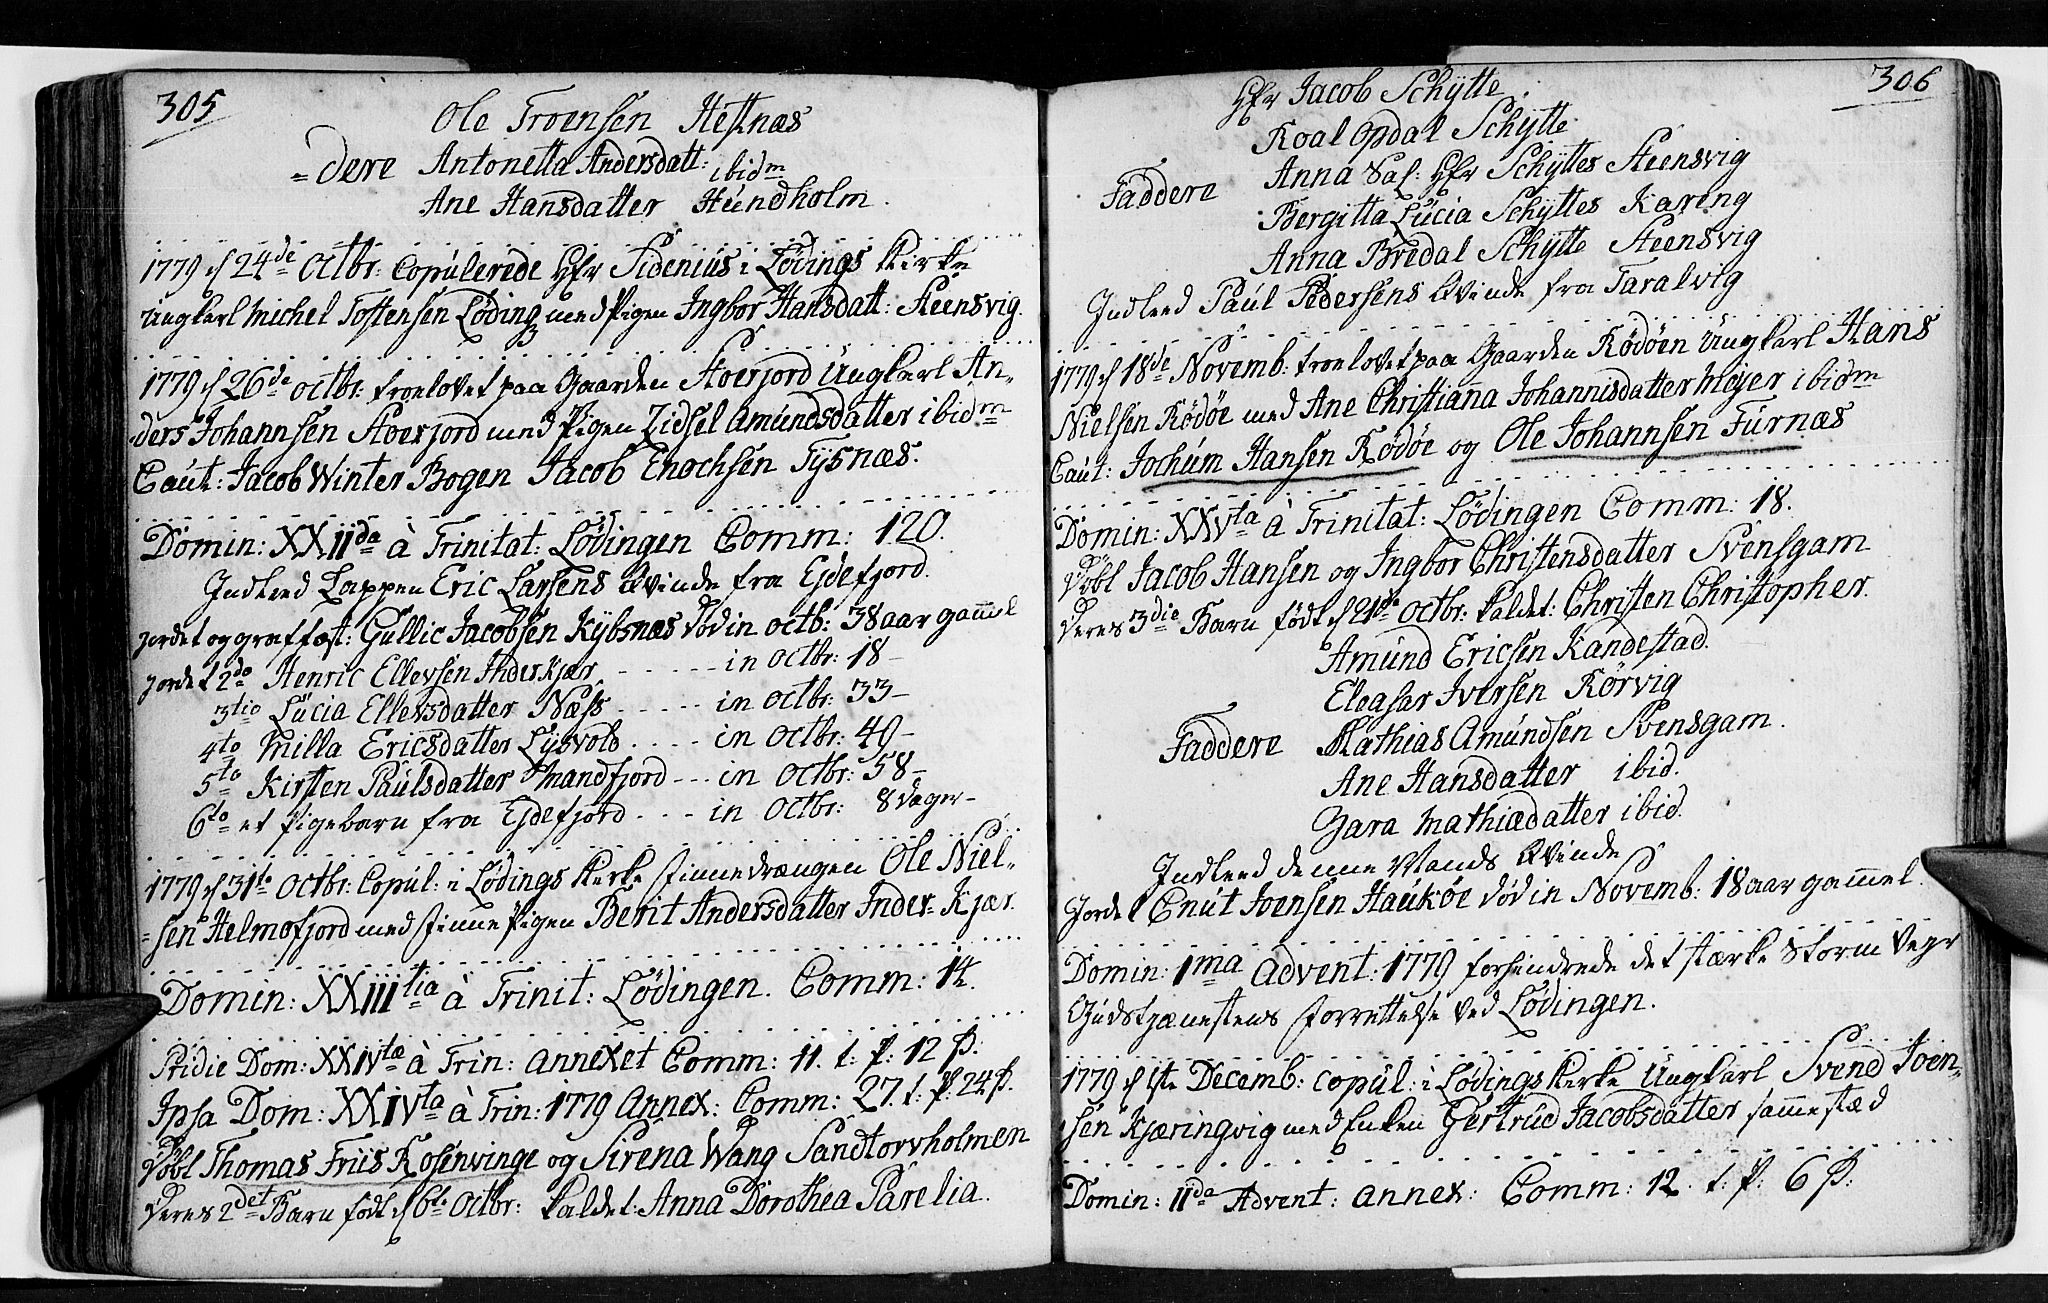 305
Ole Troensen Hestnæs
=dere Antonetta Andersdatt: ibidm
Ane Hansdatter Hundholm.
1779 d 24de Octbr: Copulerede Hr Sidenius i Lødings Kirke
Ungkarl Michel Tostensen Løding med Pigen Ingbor Hansdatt: Steensvig.
1779 d 26de Octbr: troelovet paa Gaarden Stoerfjord Ungkarl An=
ders Johannsen Stoerfjord med Pigen Zidsel Amundsdatter ibidm
Caut: Jacob Winter Bogen Jacob Enochsen Tysnæs.
Domin: XXIIda à Trinitat: Lødingen Comm: 120.
Indleed Lappen Eric Larsens Qvinde fra Ejdefjord.
jordet og graffæst: Gullic Jacobsen Kybsnæs død in Octb: 38 aar gammel
jordet 2do Henric Ellevsen Inderkjær - - - - - in Octbr: 18 -
3tio Lucia Ellersdatter Næss - - - - - in Octbr: 33 -
4to Milla Ericsdatter Lysvold . . . . in Octbr: 49 -
5to Kirsten Paulsdatter Mandfjord - - - in Octbr: 58 -
6to et Pigebarn fra Ejdefjord - - - in Octbr: 8 Dager -
1779 d 31te Octbr: Copul: i Lødings Kerke finnedrængen Ole Niel=
=sen Helmofjord med finne Pigen Berit Andersdatter Inder-Kjær.
Domin: XXIIItia à Trinit: Lødingen. Comm: 14.
Pridie Dom: XXIVtæ à Trin: Annexet Comm: 11. t: P: 12 ß:
Ipsa Dom: XXIVta à Trin: 1779 Annex: Comm: 27. t: P: 24 ß.
Døbt Thomas Friis Rosenvinge og Sirena Wang Sandtorvholmen
Deres 2det Barn født d 6te Octbr: kaldet: Anna Dorothea Parelia.
306
Hr Jacob Schytte.
Roal Opdal Schytte
Anna Sal: Hr Schyttes Steensvig
Faddere
Bergitta Lucia Schyttes Kareng
Anna Bredal Schytte Steensvig
Indleed Paul Pedersens Qvinde fra Taralvig
1779 d 18de Novemb: troelovet paa Gaarden Rødøen Ungkarl Hans
Nielsen Rødøe med Ane Christianna Johannisdatter Mejer ibidm
Caut: Jochum Hansen Rødøe og Ole Johannsen Furnæs
Domin: XXVta à Trinitat: Lødingen Comm: 18.
Døbt Jacob Hansen og Ingbor Christensdatter Svensgam
Deres 3die Barn født d 21de Octbr: kaldet: Christen Christopher.
Amund Ericsen Kandestad.
Eleasar Iversen Rørvig
Faddere Mathias Amundsen Svensgam.
Ane Hansdatter ibid.
Zara Mathiædatter ibid.
Indleed denne Mands Qvinde
Jordet Cnut Joensen Haukøe død in Novemb: 18 aar gammel.
Domin: 1ma Advent: 1779 forhindrede det stærke Storm Vejr
Gudstjænestens Forrettelse ved Lødingen.
1779 d 1te Decemb: Copul: i Lødings Kerke Ungkarl Svend Joen=
sen Kjæringvig med Enken Gertrud Jacobsdatter sammestæd
Domin: IIda Advent: Annex: Comm: 12. t: P: 6 ß: